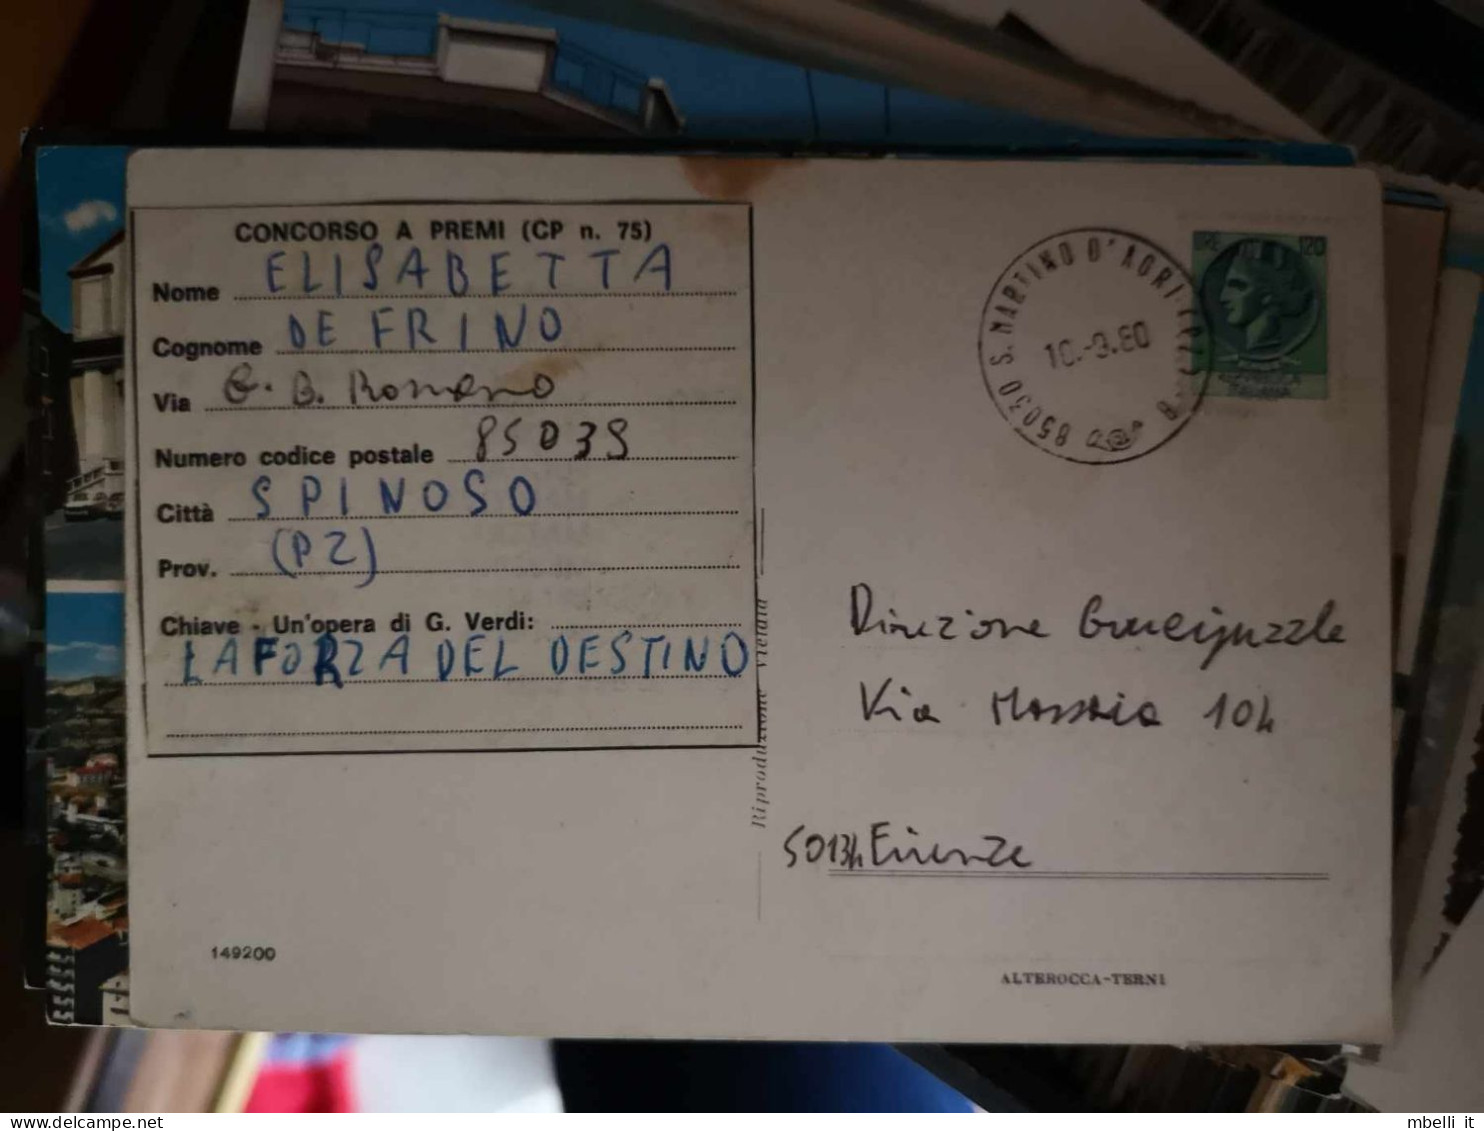 CONCORSO A PREMI (CP n. 75)
Nome ELISABETTA
Cognome DE FRINO
Via G. B. Romano
Numero codice postale 85039
Città SPINOSO
Prov. (PZ)
Chiave - Un'opera di G. Verdi:
LA FORZA DEL DESTINO
149200
Riproduzione vietata
85030 S. MARTINO D'AGRI
10.-9.80
LIRE 120
ITALIANA
Direzione
Via 104
50134 Firenze
ALTEROCCA-TERNI
mbelli it